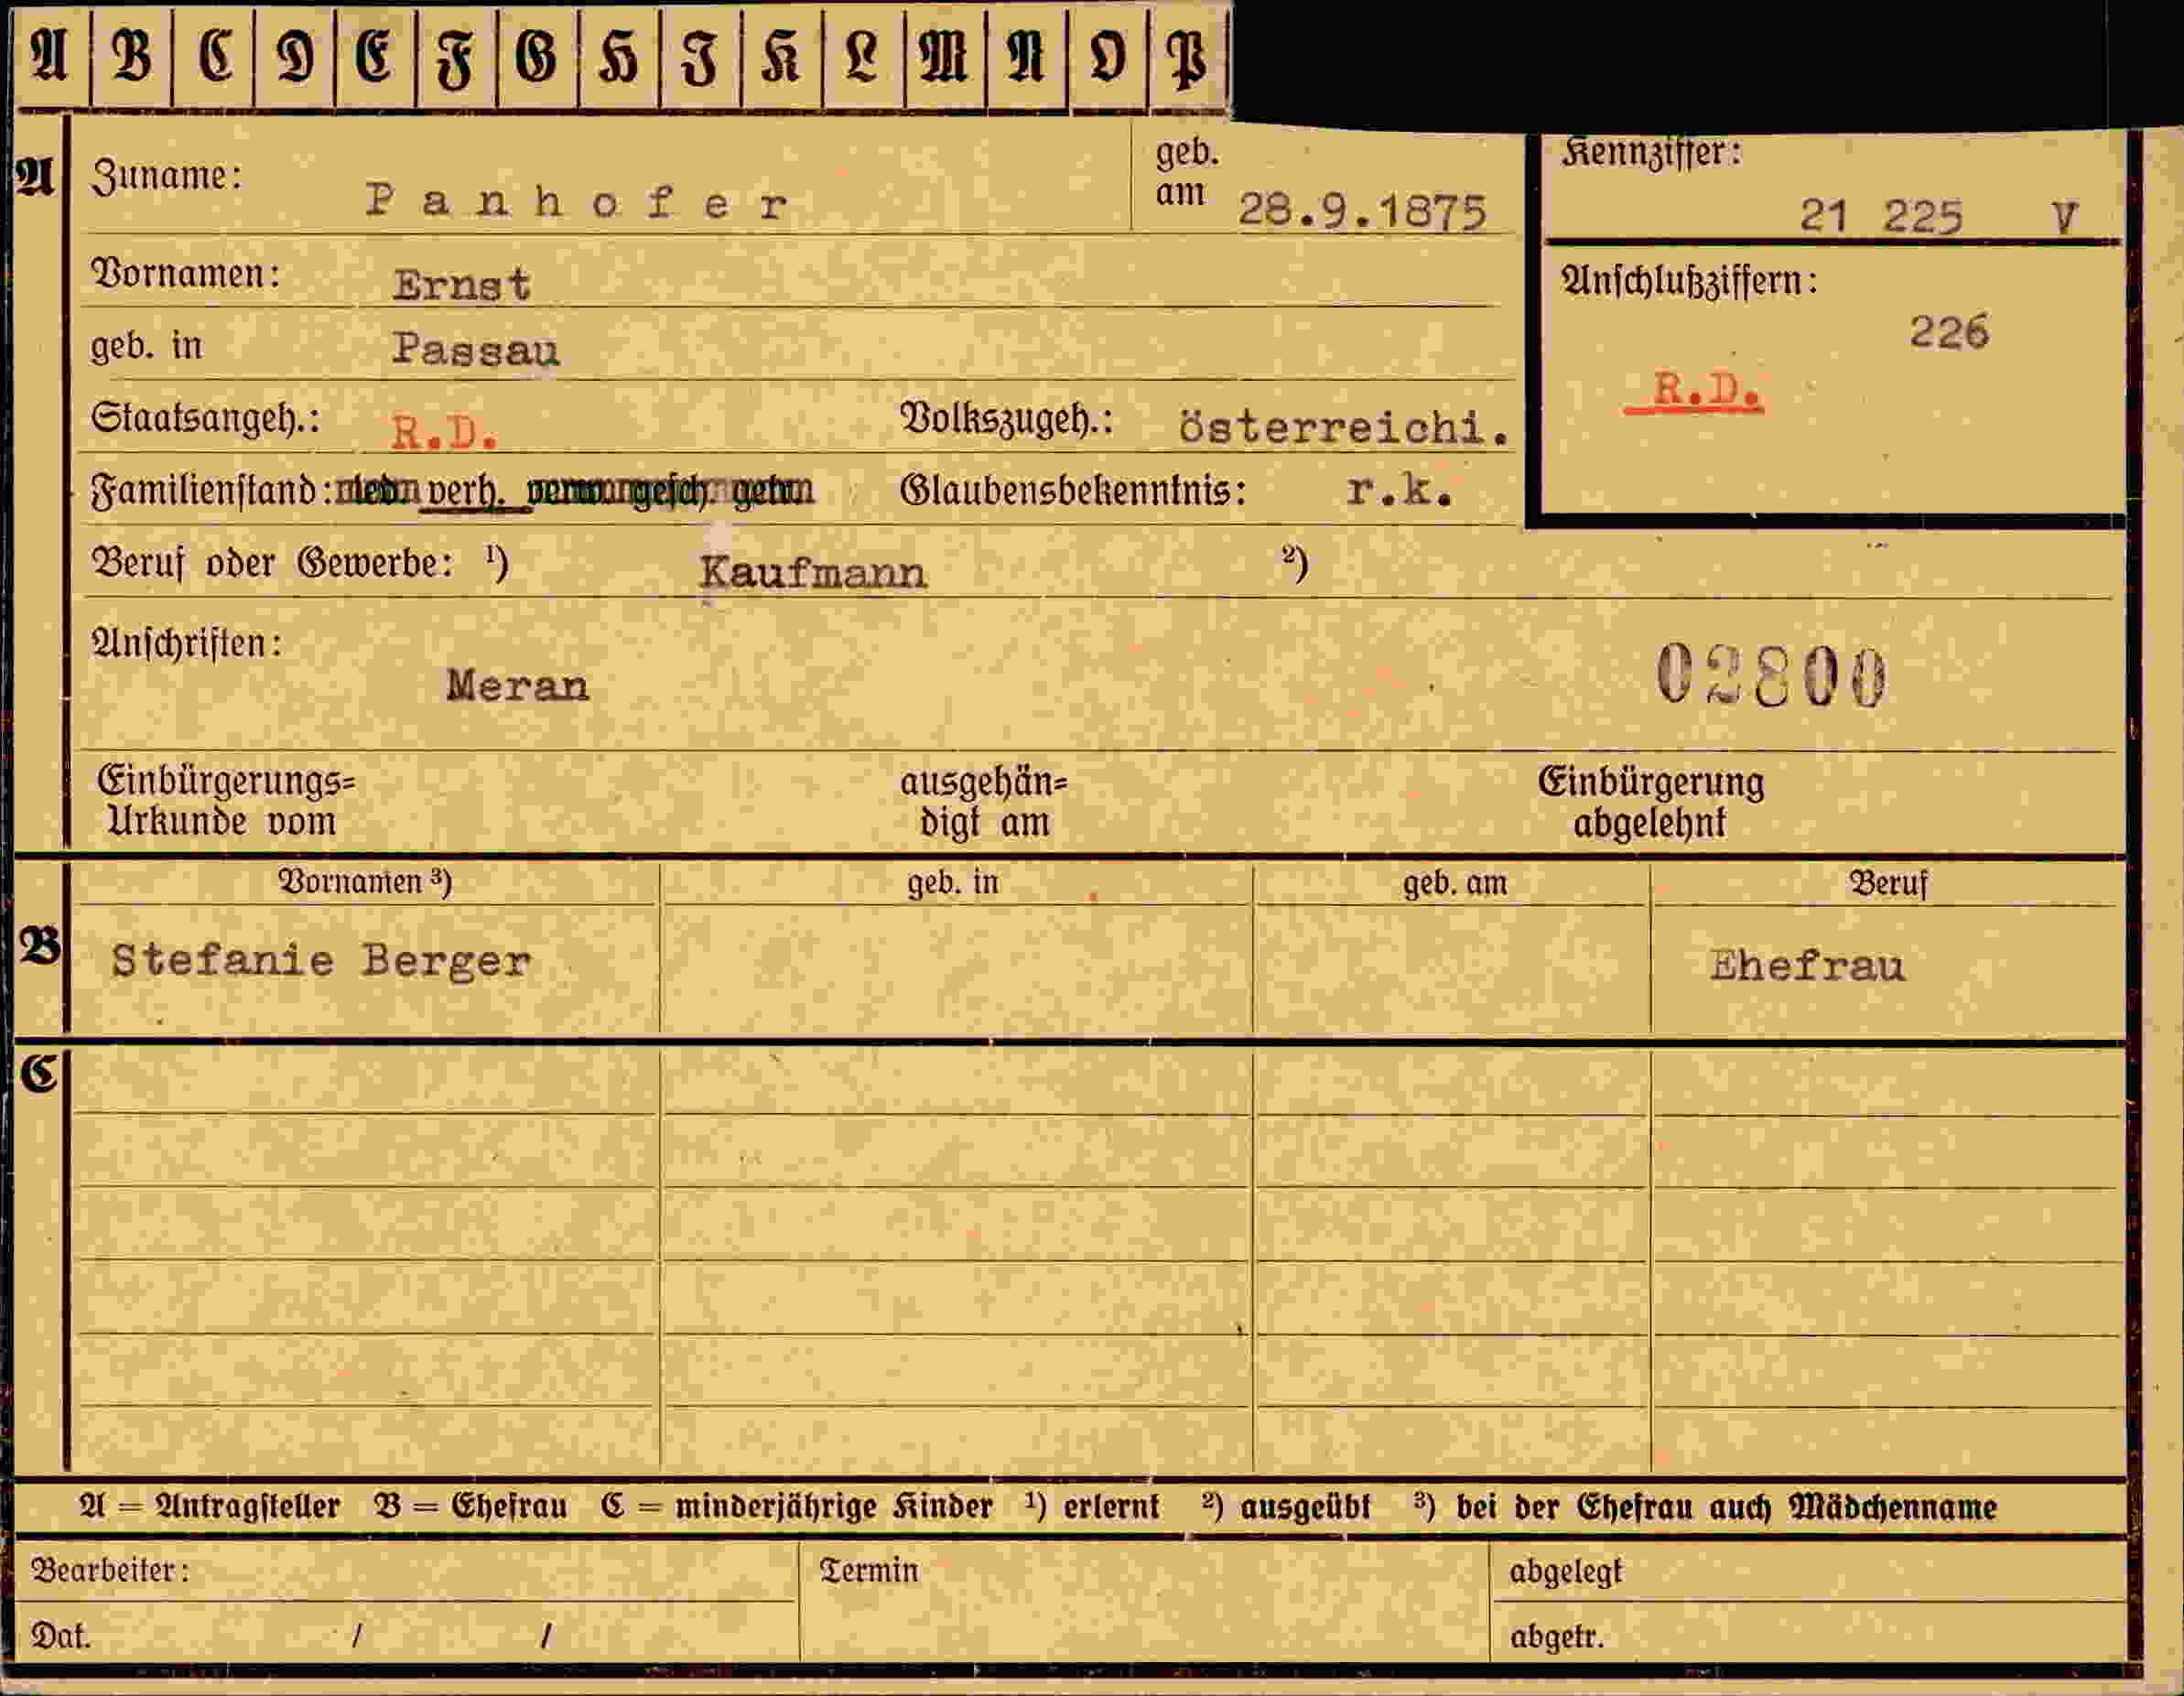 A B C D E F G H I K L M N O P
A Zuname: Panhofer geb. am 28.9.1875 Kennziffer: 21 225 V
Vornamen: Ernst Anschlußziffern: 226
geb. in Passau R.D.
Staatsangeh.: R.D. Volkszugeh.: österreichi.
Familienstand: verh. gesch. Glaubensbekenntnis: r.k.
Beruf oder Gewerbe: ¹) Kaufmann ²)
Anschriften:
Meran 02800
Einbürgerungs= ausgehän= Einbürgerung
Urkunde vom digt am abgelehnt
Vornamen ³) geb. in geb. am Beruf
B Stefanie Berger Ehefrau
C
A = Antragsteller B = Ehefrau C = minderjährige Kinder ¹) erlernt ²) ausgeübt ³) bei der Ehefrau auch Mädchenname
Bearbeiter: Termin abgelegt
Dat. / / abgetr.